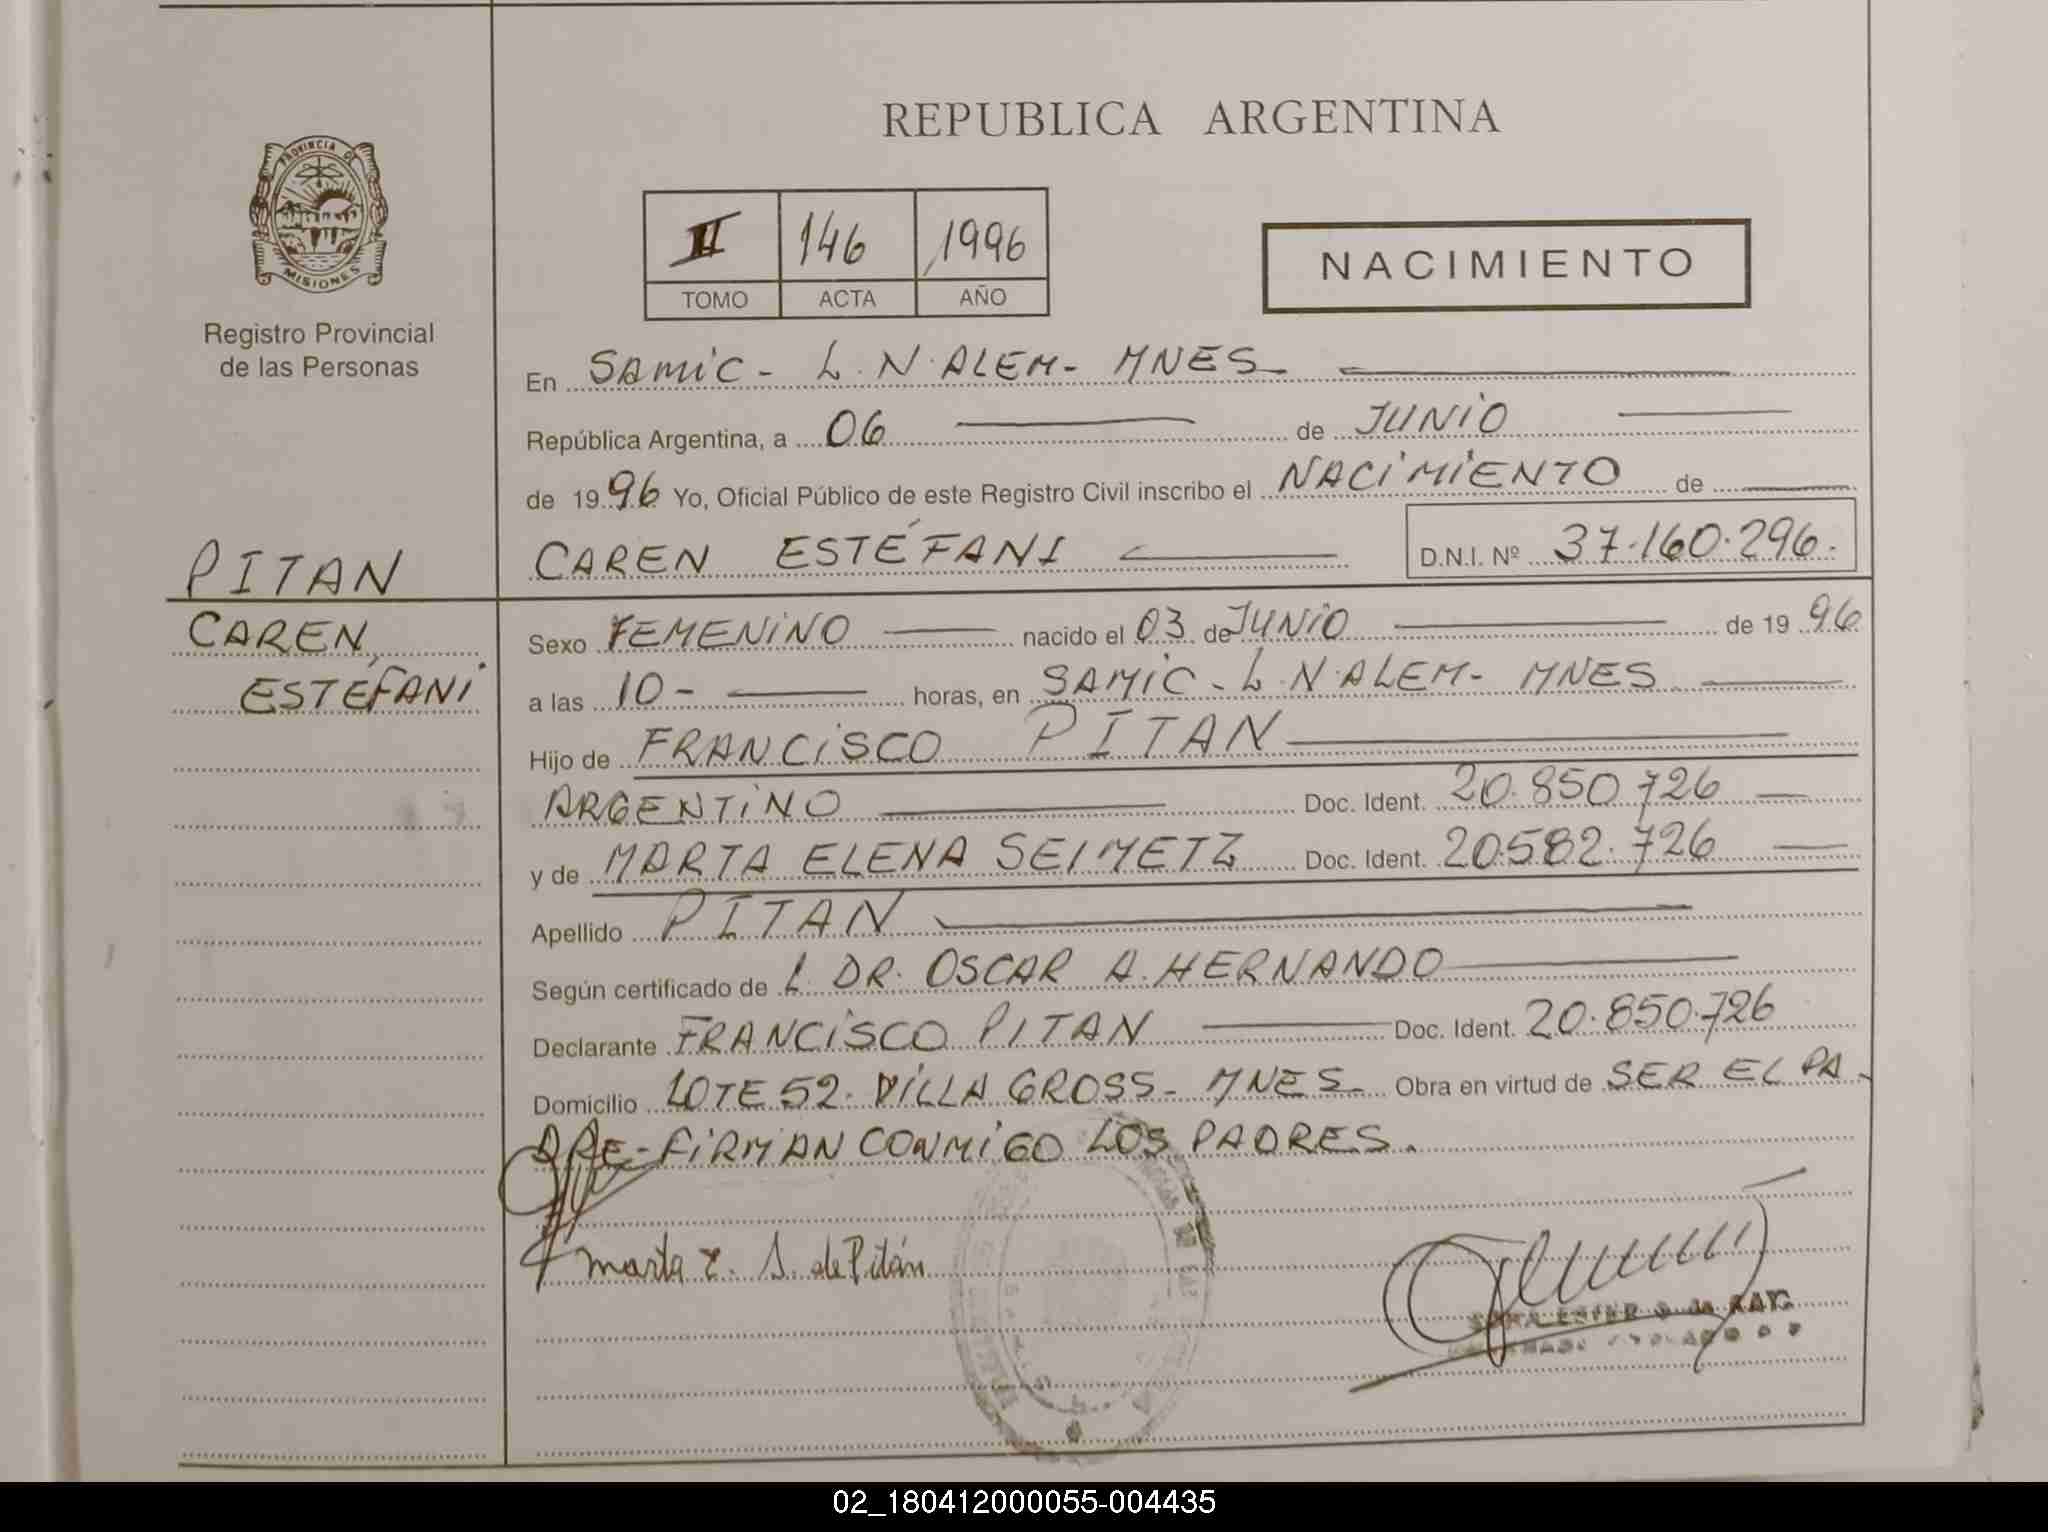 REPUBLICA ARGENTINA
PROVINCIA DE
MISIONES
Registro Provincial
de las Personas
II 146 1996
TOMO ACTA AÑO
NACIMIENTO
En SAMIC - L. N. ALEM - MNES
República Argentina, a 06 de JUNIO
de 1996 Yo, Oficial Público de este Registro Civil inscribo el NACIMIENTO de
CAREN ESTÉFANI D.N.I. Nº 37.160.296.
PITAN
CAREN,
ESTEFANI
Sexo FEMENINO nacido el 03 de JUNIO de 1996
a las 10 - horas, en SAMIC - L. N. ALEM - MNES
Hijo de FRANCISCO PITAN
ARGENTINO Doc. Ident. 20.850.726
y de MARTA ELENA SEIMETZ Doc. Ident. 20.582.726
Apellido PITAN
Según certificado de L DR. OSCAR A. HERNANDO
Declarante FRANCISCO PITAN Doc. Ident. 20.850.726
Domicilio LOTE 52 - VILLA GROSS - MNES Obra en virtud de SER EL PA-
DRE - FIRMAN CONMIGO LOS PADRES.
Marta E. S. de Pitán
02_180412000055-004435